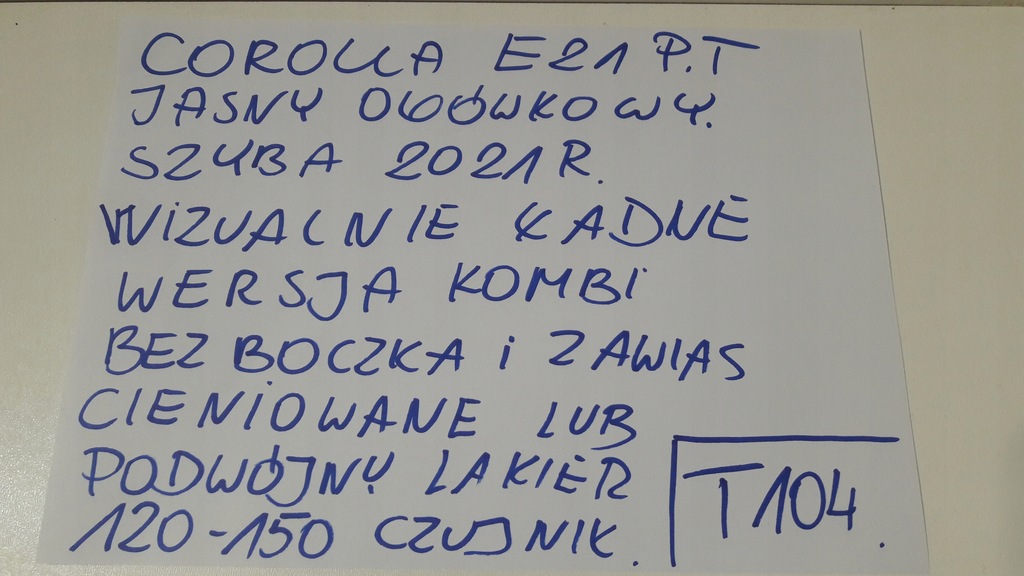 COROLLA E21 P.T
JASNY OŁÓWKOWY.
SZYBA 2021R.
WIZUALNIE ŁADNE
WERSJA KOMBI
BEZ BOCZKA i ZAWIAS
CIENIOWANE LUB
PODWÓJNY LAKIER
120-150 CZUJNIK.
T104.